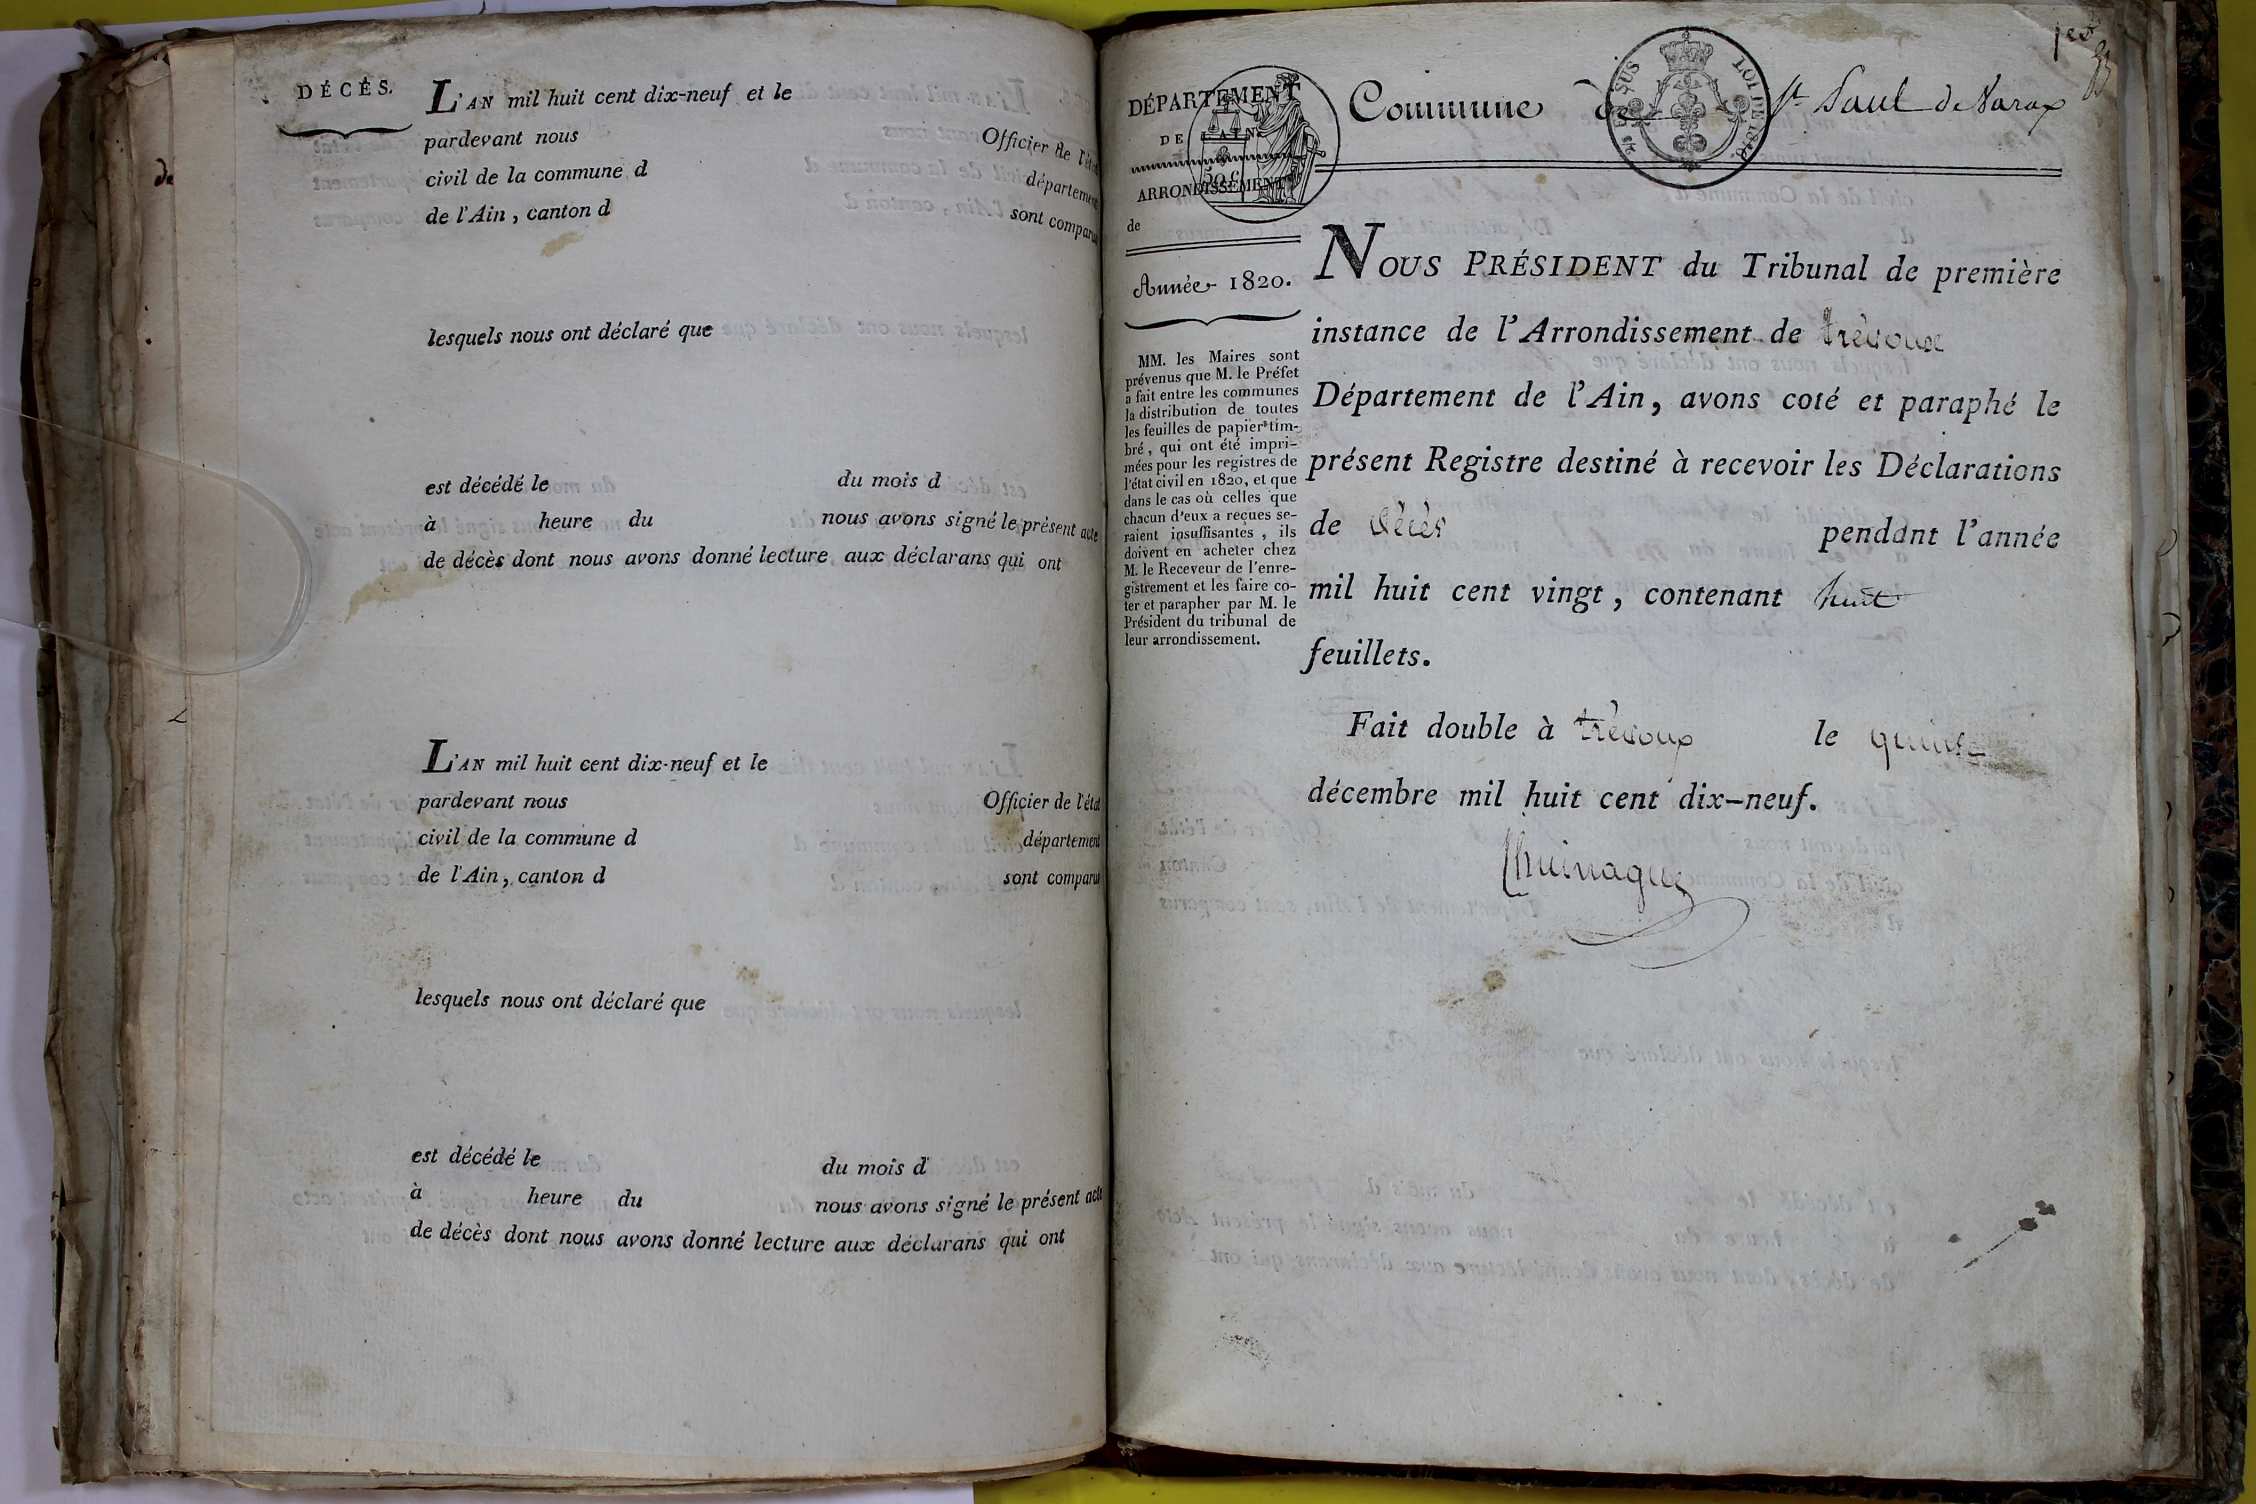 DÉCÈS.
L'AN mil huit cent dix-neuf et le
pardevant nous Officier de l'état
civil de la commune d département
de l'Ain, canton d sont comparus
lesquels nous ont déclaré que
est décédé le du mois d
à heure du nous avons signé le présent acte
de décès dont nous avons donné lecture aux déclarans qui ont
L'AN mil huit cent dix-neuf et le
pardevant nous Officier de l'état
civil de la commune d département
de l'Ain, canton d sont comparus
lesquels nous ont déclaré que
est décédé le du mois d
à heure du nous avons signé le présent acte
de décès dont nous avons donné lecture aux déclarans qui ont
DÉPARTEMENT
DE L'AIN
ARRONDISSEMENT
de
50 c
Année 1820.
MM. les Maires sont
prévenus que M. le Préfet
a fait entre les communes
la distribution de toutes
les feuilles de papier tim-
bré, qui ont été impri-
mées pour les registres de
l'état civil en 1820, et que
dans le cas où celles que
chacun d'eux a reçues se-
raient insuffisantes, ils
doivent en acheter chez
M. le Receveur de l'enre-
gistrement et les faire co-
ter et parapher par M. le
Président du tribunal de
leur arrondissement.
Commune de St Paul de Varax
EN SUS LOI DE 1818.
NOUS PRÉSIDENT du Tribunal de première
instance de l'Arrondissement de trévoux
Département de l'Ain, avons coté et paraphé le
présent Registre destiné à recevoir les Déclarations
de décès pendant l'année
mil huit cent vingt, contenant huit
feuillets.
Fait double à trévoux le quinze
décembre mil huit cent dix-neuf.